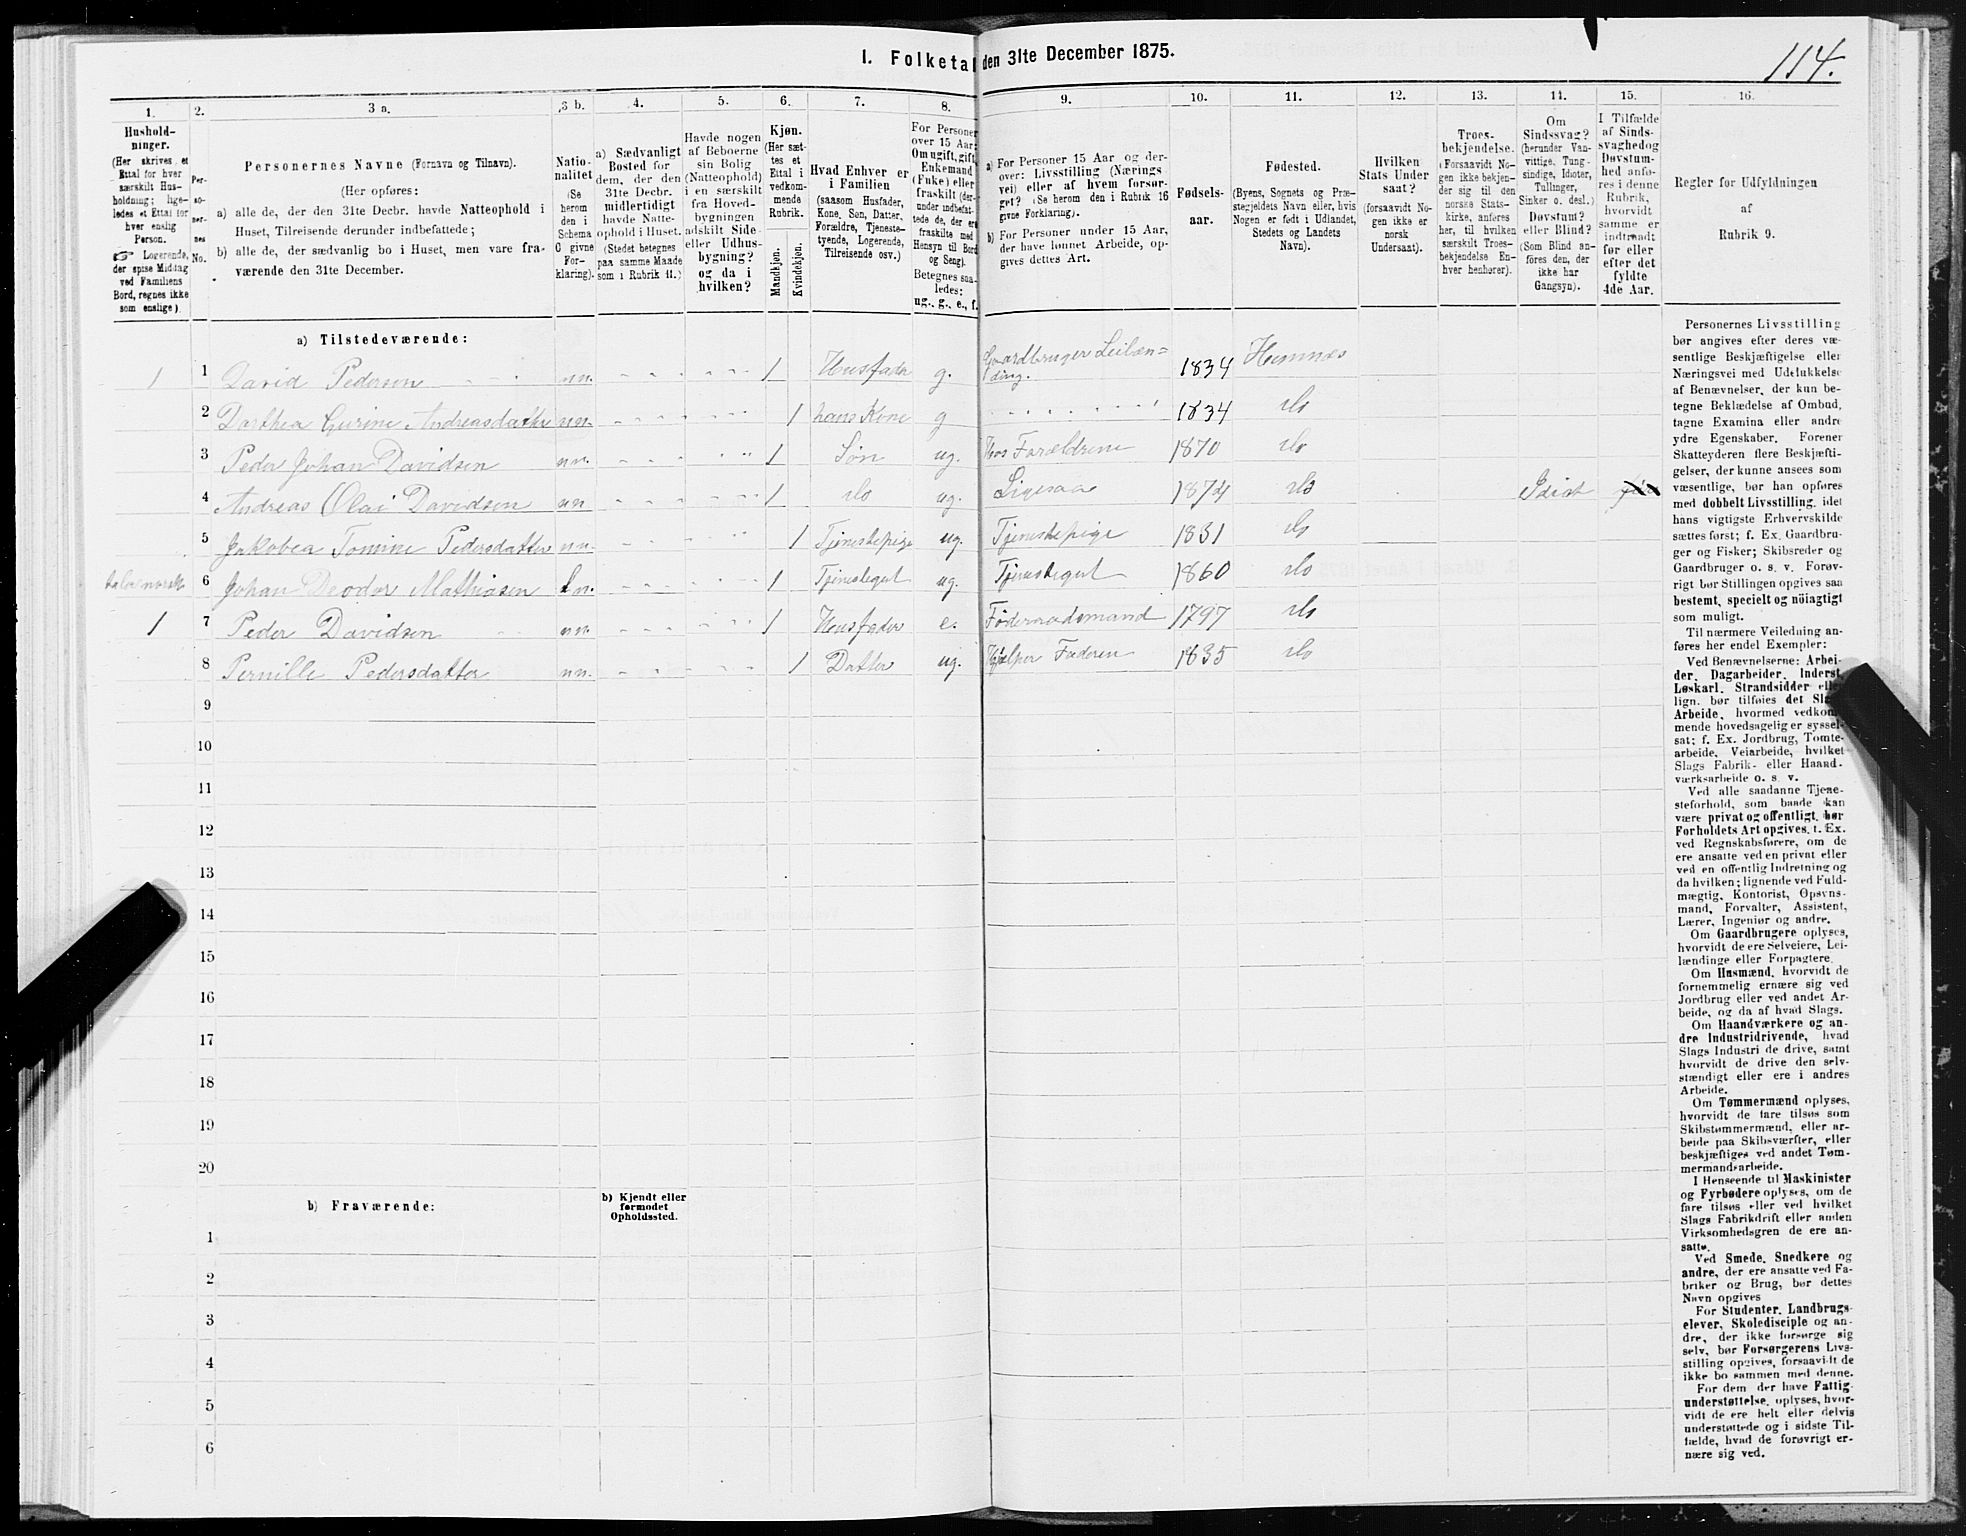 114.
I. Folketal den 31te December 1875.
1. 2. 3 a. 3 b. 4. 5. 6. 7. 8. 9. 10. 11. 12. 13. 14. 15. 16.
Hushold-
ninger.
(Her skrives et
Ettal for hver
særskilt Hus-
holdning; lige-
ledes et Ettal for
hver enslig
Person.
☞ Logerende,
der spise Middag
ved Familiens
Bord, regnes ikke
som enslige).
Per-
so-
ner-
nes
No.
Personernes Navne (Fornavn og Tilnavn).
(Her opføres:
a) alle de, der den 31te Decbr. havde Natteophold i
Huset, Tilreisende derunder indbefattede;
b) alle de, der sædvanlig bo i Huset, men vare fra-
værende den 31te December.
Natio-
nalitet
(Se
herom
den i
Schema
C givne
For-
klaring).
a) Sædvanligt
Bosted for
dem, der den
31te Decbr.
midlertidigt
havde Natte-
ophold i Huset.
(Stedet betegnes
paa samme Maade
som i Rubrik 11.)
Havde nogen
af Beboerne
sin Bolig
(Natteophold)
i en særskilt
fra Hoved-
bygningen
adskilt Side-
eller Udhus-
bygning?
og da i
hvilken?
Kjøn.
(Her sæt-
tes et
Ettal i
vedkom-
mende
Rubrik.
Mandkjøn.
Kvindekjøn.
Hvad Enhver er
i Familien
(saasom Husfader,
Kone, Søn, Datter,
Forældre, Tjeneste-
tyende, Logerende,
Tilreisende osv.)
For Personer
over 15 Aar:
Om ugift, gift,
Enkemand
(Enke) eller
fraskilt (der-
under indbefat-
tede de, der ere
fraskilte med
Hensyn til Bord
og Seng).
Betegnes saa-
ledes:
ug., g., e., f.
a) For Personer 15 Aar og der-
over: Livsstilling (Nærings-
vei) eller af hvem forsør-
get? (Se herom den i Rubrik 16
givne Forklaring).
b) For Personer under 15 Aar,
der have lønnet Arbeide, op-
gives dettes Art.
Fødsels-
aar.
Fødested.
(Byens, Sognets og Præ-
stegjeldets Navn eller, hvis
Nogen er født i Udlandet,
Stedets og Landets
Navn).
Hvilken
Stats Under
saat?
(forsaavidt No-
gen ikke er
norsk
Undersaat).
Troes-
bekjendelse.
(Forsaavidt No-
gen ikke bekjen-
der sig til den
norske Stats-
kirke, anføres
her, til hvilken
særskilt Troes-
bekjendelse En-
hver henhører).
Om
Sindssvag?
(herunder Van-
vittige, Tung-
sindige, Idioter,
Tullinger,
Sinker o. desl.)
Døvstum?
eller Blind?
(Som Blind an-
føres den, der
ikke har
Gangsyn).
I Tilfælde
af Sinds-
svaghedog
Døvstum-
hed anfø-
res i denne
Rubrik,
hvorvidt
samme er
indtraadt
før eller
efter det
fyldte
4de Aar.
Regler for Udfyldningen
af
Rubrik 9.
a) Tilstedeværende:
1 1 David Pedersen nn. 1 Husfader g. Gaardbruger Leilæn=
ding. 1834 Hemnæs
2 Dorthea Gurine Andreasdatter nn. 1 hans Kone g 1834 do
3 Peder Johan Davidsen nn. 1 Søn ug. Hos Forældrene 1870 do
4 Andreas Olai Davidsen nn 1 do ug. Ligesaa 1874 do Idiot
5 Jakobea Tomine Pedersdatter nn. 1 Tjenestepige ug. Tjenestepige 1831 do
6 Johan Mathiasen 1 Tjenestegut ug. Tjenestegut 1860 do
1 7 Peder Davidsen nn. 1 Husfader e. Føderaadsmand 1797 do
8 Pernille Pedersdatter nn. 1 Datter ug. Hjælper Faderen 1835 do
9
10
11
12
13
14
15
16
17
18
19
20
b) Fraværende:
b) Kjendt eller
formodet
Opholdssted.
1
2
3
4
5
6
Personernes Livsstilling
bør angives efter deres væ-
sentlige Beskjæftigelse eller
Næringsvei med Udelukkelse
af Benævnelser, der kun be-
tegne Beklædelse af Ombud,
tagne Examina eller andre
ydre Egenskaber. Forener
Skatteyderen flere Beskjæfti-
gelser, der kunne ansees som
væsentlige, bør han opføres
med dobbelt Livsstilling, idet
hans vigtigste Erhvervskilde
sættes først; f. Ex. Gaardbru-
ger og Fisker; Skibsreder og
Gaardbruger o. s. v. Forøv-
rigt bør Stillingen opgives saa
bestemt, specielt og nöiagtigt
som muligt.
Til nærmere Veiledning an-
føres her endel Exempler:
Ved Benævnelserne: Arbei-
der, Dagarbeider, Inderst,
Løskarl, Strandsidder eller
lign. bør tilføies det Slags
Arbeide, hvormed vedkom-
mende hovedsagelig er syssel-
sat; f. Ex. Jordbrug, Tomte-
arbeide, Veiarbeide, hvilket
Slags Fabrik- eller Haand-
værksarbeide o. s. v.
Ved alle saadanne Tjene-
steforhold, som baade kan
være privat og offentligt, bør
Forholdets Art opgives, f. Ex.
ved Regnskabsførere, om de
ere ansatte ved en privat eller
ved en offentlig Indretning og
da hvilken; lignende ved Fuld-
mægtig, Kontorist, Opsyns-
mand, Forvalter, Assistent,
Lærer, Ingeniør og andre.
Om Gaardbrugere oplyses,
hvorvidt de ere Selveiere, Lei-
lændinge eller Forpagtere.
Om Husmænd, hvorvidt de
fornemmelig ernære sig ved
Jordbrug eller ved andet Ar-
beide, og da af hvad Slags.
Om Haandværkere og an-
dre Industridrivende, hvad
Slags Industri de drive, samt
hvorvidt de drive den selv-
stændigt eller ere i andres
Arbeide.
Om Tømmermænd oplyses,
hvorvidt de fare tilsøs som
Skibstømmermænd, eller ar-
beide paa Skibsværfter, eller
beskjæftiges ved andet Tøm-
mermandsarbeide.
I Henseende til Maskinister
og Fyrbødere oplyses, om de
fare tilsøs eller ved hvilket
Slags Fabrikdrift eller anden
Virksomhedsgren de ere an-
satte.
Ved Smede, Snedkere og
andre, der ere ansatte ved Fa-
briker og Brug, bør dettes
Navn opgives
For Studenter, Landbrugs-
elever, Skoledisciple og an-
dre, der ikke forsørge sig
selv, bør Forsørgerens Livs-
stilling opgives, forsaavidt de
ikke bo sammen med denne.
For dem der have Fattig
understøttelse, oplyses, hvor-
vidt de ere helt eller delvis
understøttede og i sidste Til-
fælde, hvad de forøvrigt er-
nære sig ved.